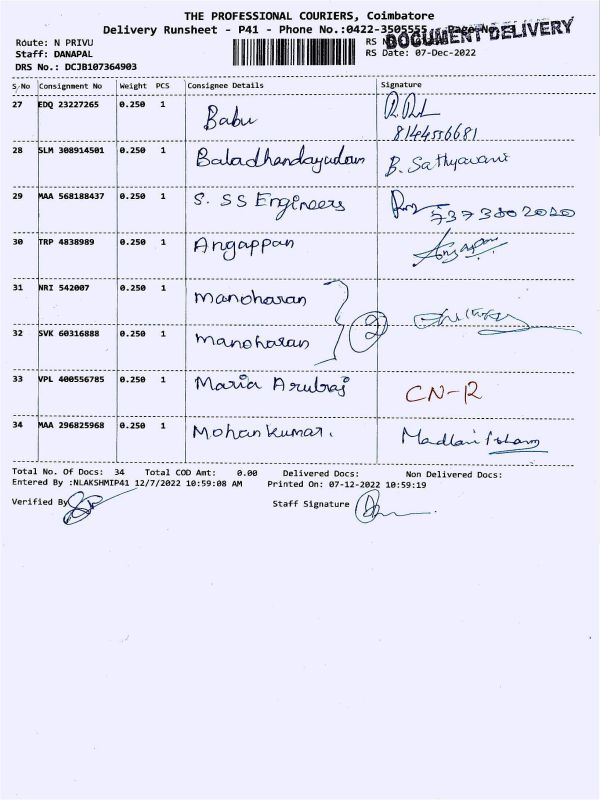 THE PROFESSIONAL COURIERS, Coimbatore
Delivery Runsheet - P41 - Phone No.:0422-3505555
DOCUMENT DELIVERY
Route: N PRIVU
RS
Staff: DANAPAL
RS Date: 07-Dec-2022
DRS No.: DCJB107364903
S/No Consignment No Weight PCS Consignee Details Signature
27 EDQ 23227265 0.250 1 Babu
8144556681
28 SLM 308914501 0.250 1 Baladhandayudam B. Sathyavani
29 MAA 568188437 0.250 1 S. SS Engineers 7373802020
30 TRP 4838989 0.250 1 Angappan Angappan
31 NRI 542007 0.250 1 Manoharan
2
32 SVK 60316888 0.250 1 Manoharan
33 VPL 400556785 0.250 1 Maria Arulraj CN-R
34 MAA 296825968 0.250 1 Mohan kumar.
Total No. Of Docs: 34 Total COD Amt: 0.00 Delivered Docs: Non Delivered Docs:
Entered By :NLAKSHMIP41 12/7/2022 10:59:08 AM Printed On: 07-12-2022 10:59:19
Verified By Staff Signature